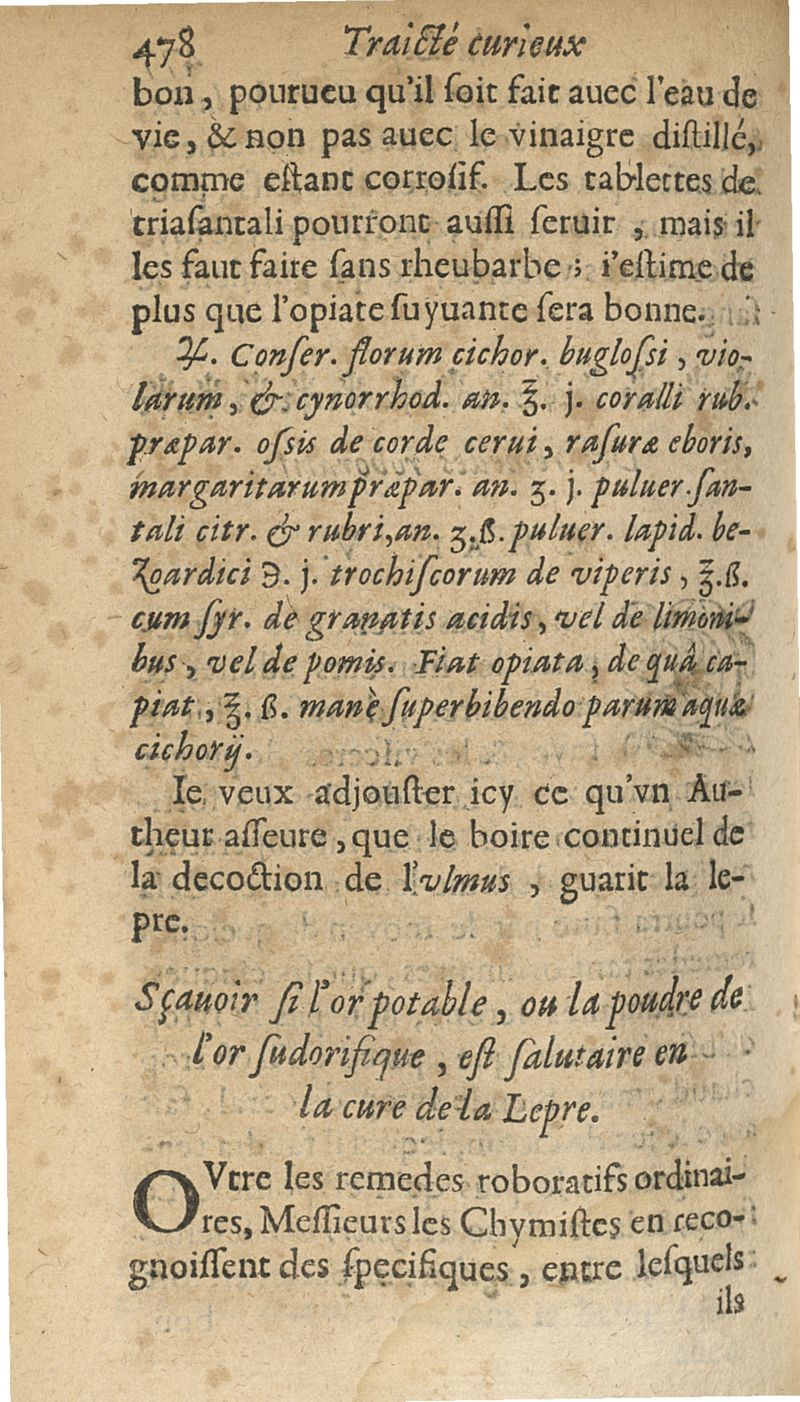 478 Traicté curieux
bon, pourueu qu'il ſoit fait auec l'eau de
vie, & non pas auec le vinaigre diſtillé,
comme eſtant corroſif. Les tablettes de
triaſantali pourront auſſi ſeruir, mais il
les faut faire ſans rheubarbe ; i'eſtime de
plus que l'opiate ſuyuante ſera bonne.
♃. Conſer. florum cichor. bugloſſi, vio-
larum, & cynorrhod. an. ℥. j. coralli rub.
præpar. oſſis de corde cerui, raſuræ eboris,
margaritarum præpar. an. ʒ. j. puluer. ſan-
tali citr. & rubri, an. ʒ.ß. puluer. lapid. be-
zoardici ℈. j. trochiſcorum de viperis, ℥.ß.
cum ſyr. de granatis acidis, vel de limoni-
bus, vel de pomis. Fiat opiata, de quâ ca-
piat, ℥. ß. manè ſuperbibendo parum aquæ
cichorij.
Ie veux adjouſter icy ce qu'vn Au-
theur aſſeure, que le boire continuel de
la decoction de l'vlmus, guarit la le-
pre.
Sçauoir ſi l'or potable, ou la poudre de
l'or ſudorifique, eſt ſalutaire en
la cure de la Lepre.
OVtre les remedes roboratifs ordinai-
res, Meſſieurs les Chymiſtes en reco-
gnoiſſent des ſpecifiques, entre leſquels
ils